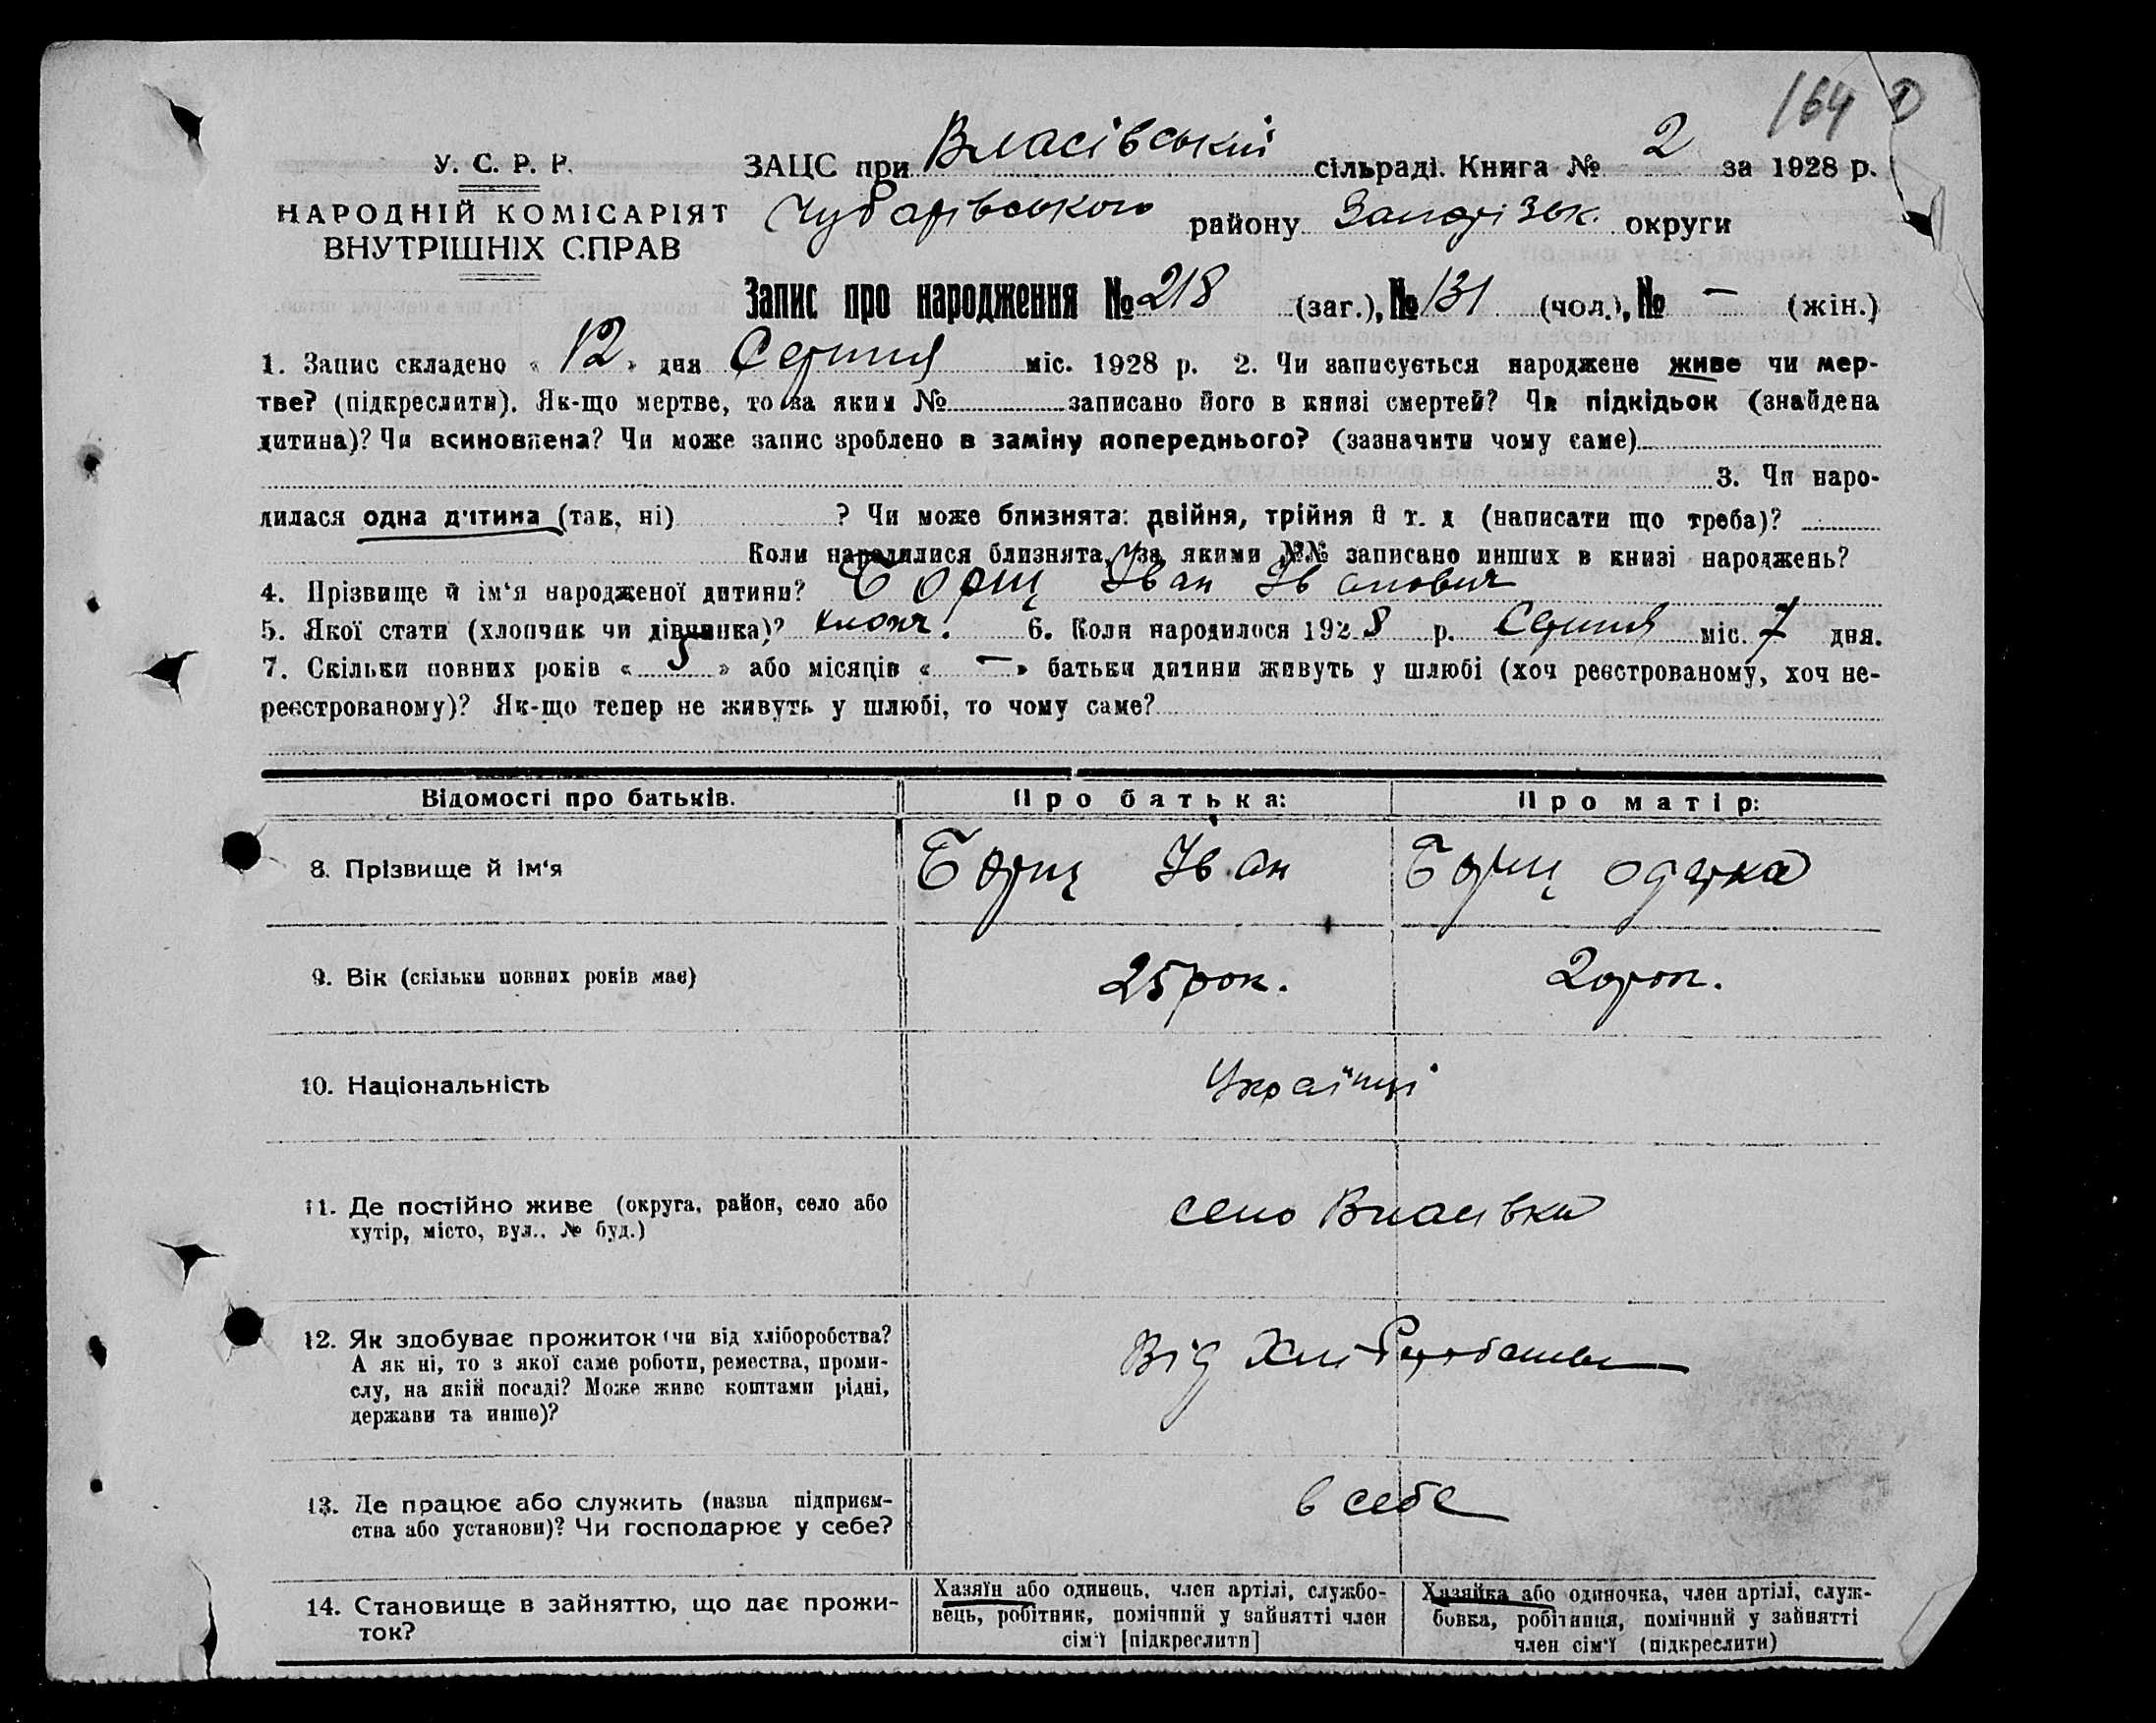 164
У. С. Р. Р.
НАРОДНІЙ КОМІСАРІЯТ
ВНУТРІШНІХ СПРАВ
ЗАЦС при Власівській сільраді. Книга № 2 за 1928 р.
Чубарівського району Запорізьк. округи
Запис про народження № 218 (заг.), № 131 (чол.), № — (жін.)
1. Запис складено « 12 » дня Серпня міс. 1928 р. 2. Чи записується народжене живе чи мер-
тве? (підкреслити). Як-що мертве, то за яким № записано його в книзі смертей? Чи підкідьок (знайдена
дитина)? Чи всиновлена? Чи може запис зроблено в заміну попереднього? (зазначити чому саме)
3. Чи наро-
дилася одна дитина (так, ні) ? Чи може близнята: двійня, трійня й т. д (написати що треба)?
Коли народилися близнята, за якими №№ записано инших в книзі народжень?
4. Прізвище й ім'я народженої дитини? Борщ Іван Іванович
5. Якої стати (хлопчик чи дівчинка)? хлопч. 6. Коли народилося 1928 р. Серпня міс. 7 дня.
7. Скільки повних років « 5 » або місяців « — » батьки дитини живуть у шлюбі (хоч реєстрованому, хоч не-
реєстрованому)? Як-що тепер не живуть у шлюбі, то чому саме?
Відомості про батьків. Про батька: Про матір:
8. Прізвище й ім'я Борщ Іван Борщ Одарка
9. Вік (скільки повних років має) 25 рок. 20 рок.
10. Національність Українці
11. Де постійно живе (округа, район, село або
хутір, місто, вул., № буд.)
село Власівка
12. Як здобуває прожиток (чи від хліборобства?
А як ні, то з якої саме роботи, ремества, проми-
слу, на якій посаді? Може живе коштами рідні,
держави та инше)?
Від Хліборобства
13. Де працює або служить (назва підприєм-
ства або установи)? Чи господарює у себе?
в себе
14. Становище в зайняттю, що дає прожи-
ток?
Хазяїн або одинець, член артілі, службо-
вець, робітник, помічний у зайнятті член
сім'ї [підкреслити]
Хазяйка або одиночка, член артілі, служ-
бовка, робітниця, помічний у зайнятті
член сім'ї (підкреслити)